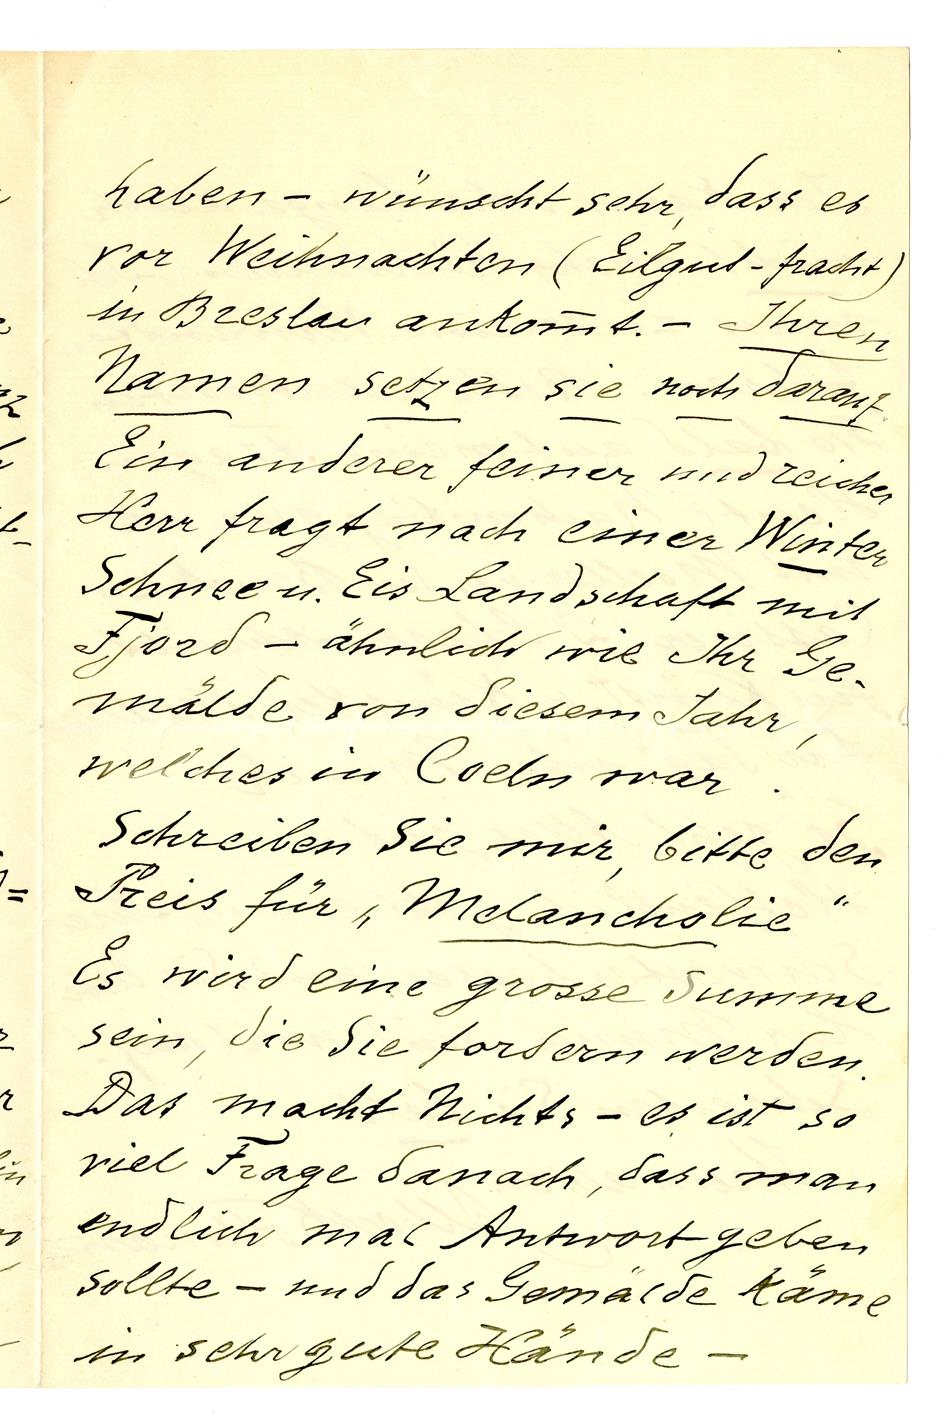 haben – wünscht sehr, dass es
vor Weihnachten (Eilgut-fracht)
in Breslau ankom̅t. – Ihren
Namen setzen sie noch darauf
Ein anderer feiner und reicher
Herr fragt nach einer Winter
Schnee u. Eis Landschaft mit
Fjord – ähnlich wie Ihr Ge-
mälde von diesem Jahr,
welches in Coeln war.
Schreiben Sie mir, bitte den
Preis für „Melancholie“
Es wird eine grosse Summe
sein, die Sie fordern werden.
Das macht Nichts – es ist so
viel Frage danach, dass man
endlich mal Antwort geben
sollte – und das Gemälde käme
in sehr gute Hände –